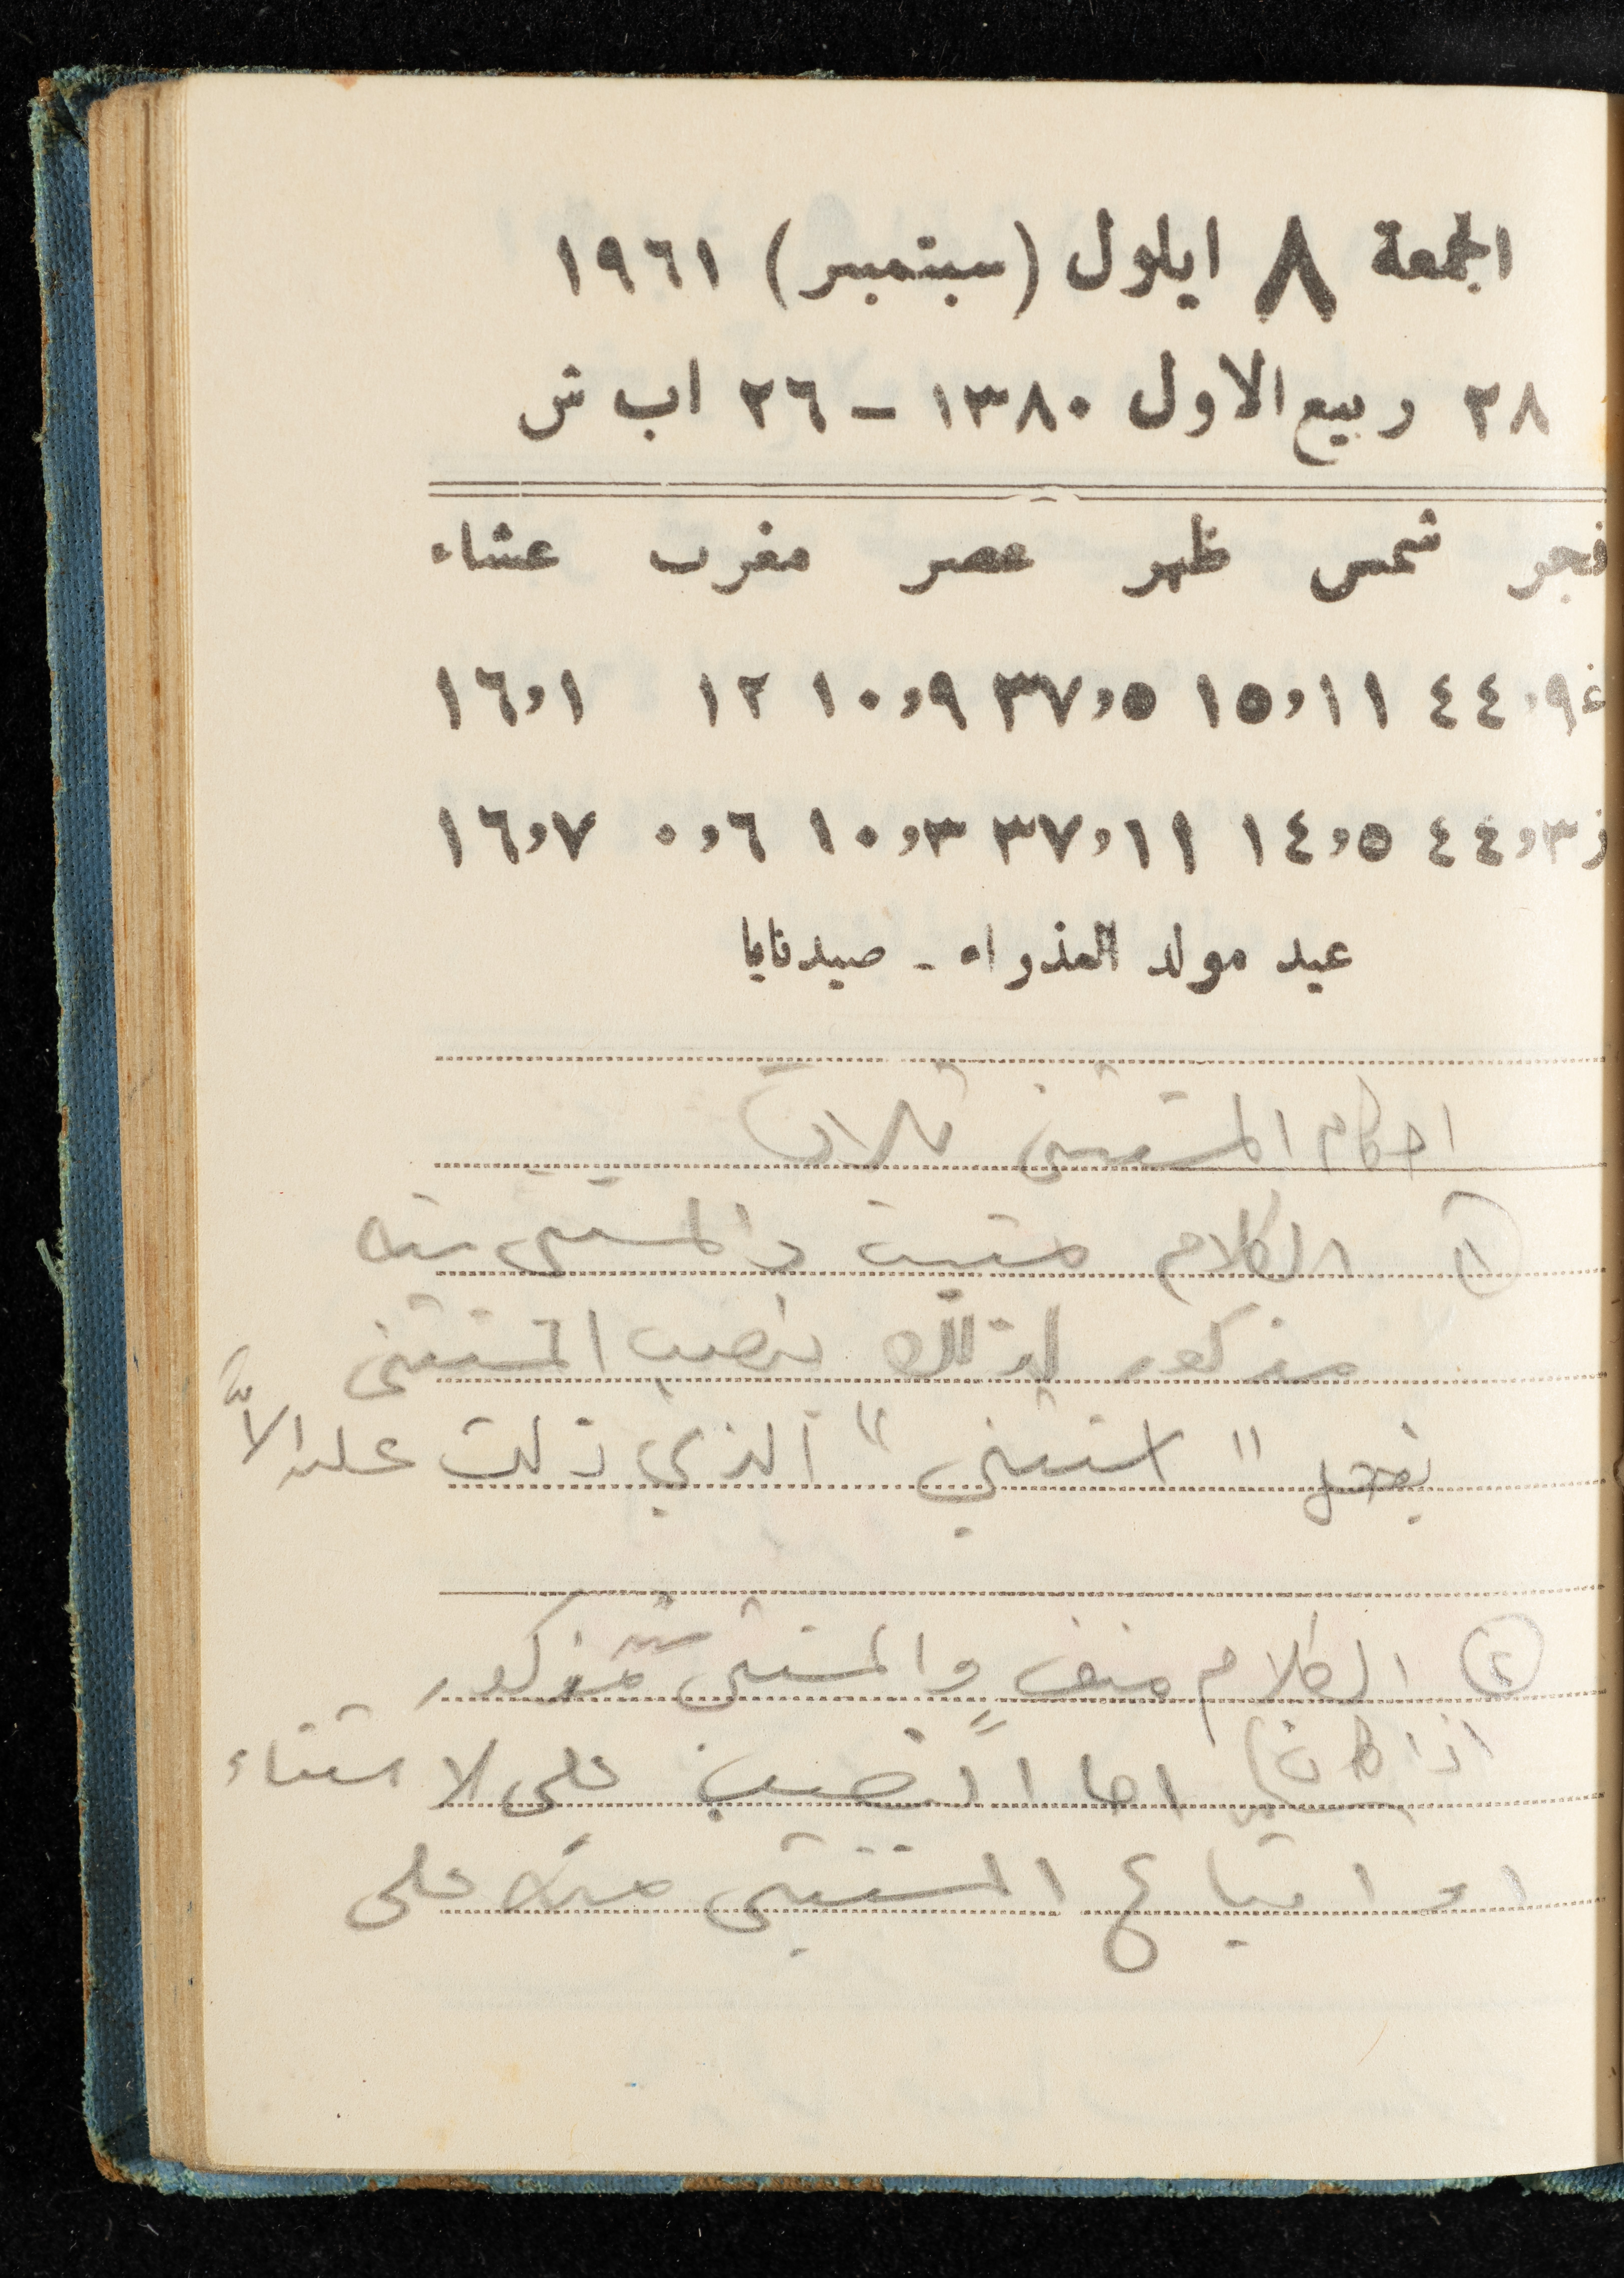 الجمعة ٨ ايلول (سبتمبر) ١٩٦١
٢٨ ربيع الاول ١٣٨٠ – ٢٦ اب ش
فجر شمس ظهر عصر مغرب عشاء
غ ٩،٤٤ ١١،١٥ ٥،٣٧ ٩،١٠ ١٢ ١،١٦
ز ٣،٤٤ ٥،١٤ ١١،٣٧ ٣،١٠ ٦،٠ ٧،١٦
عيد مولد العذراء - صيدنايا
احكام المستثنى ثلاث
١ الكلام مثبت والمستثنى منه
مذكور لذلك ينصب المستثنى
بفعل "استثني" الذي دلت عليه الاّ
٢ الكلام منفي والمستثنى منه مذكور
اذا كان اما النصب على الاستثناء
او اتباع المستثنى منه على